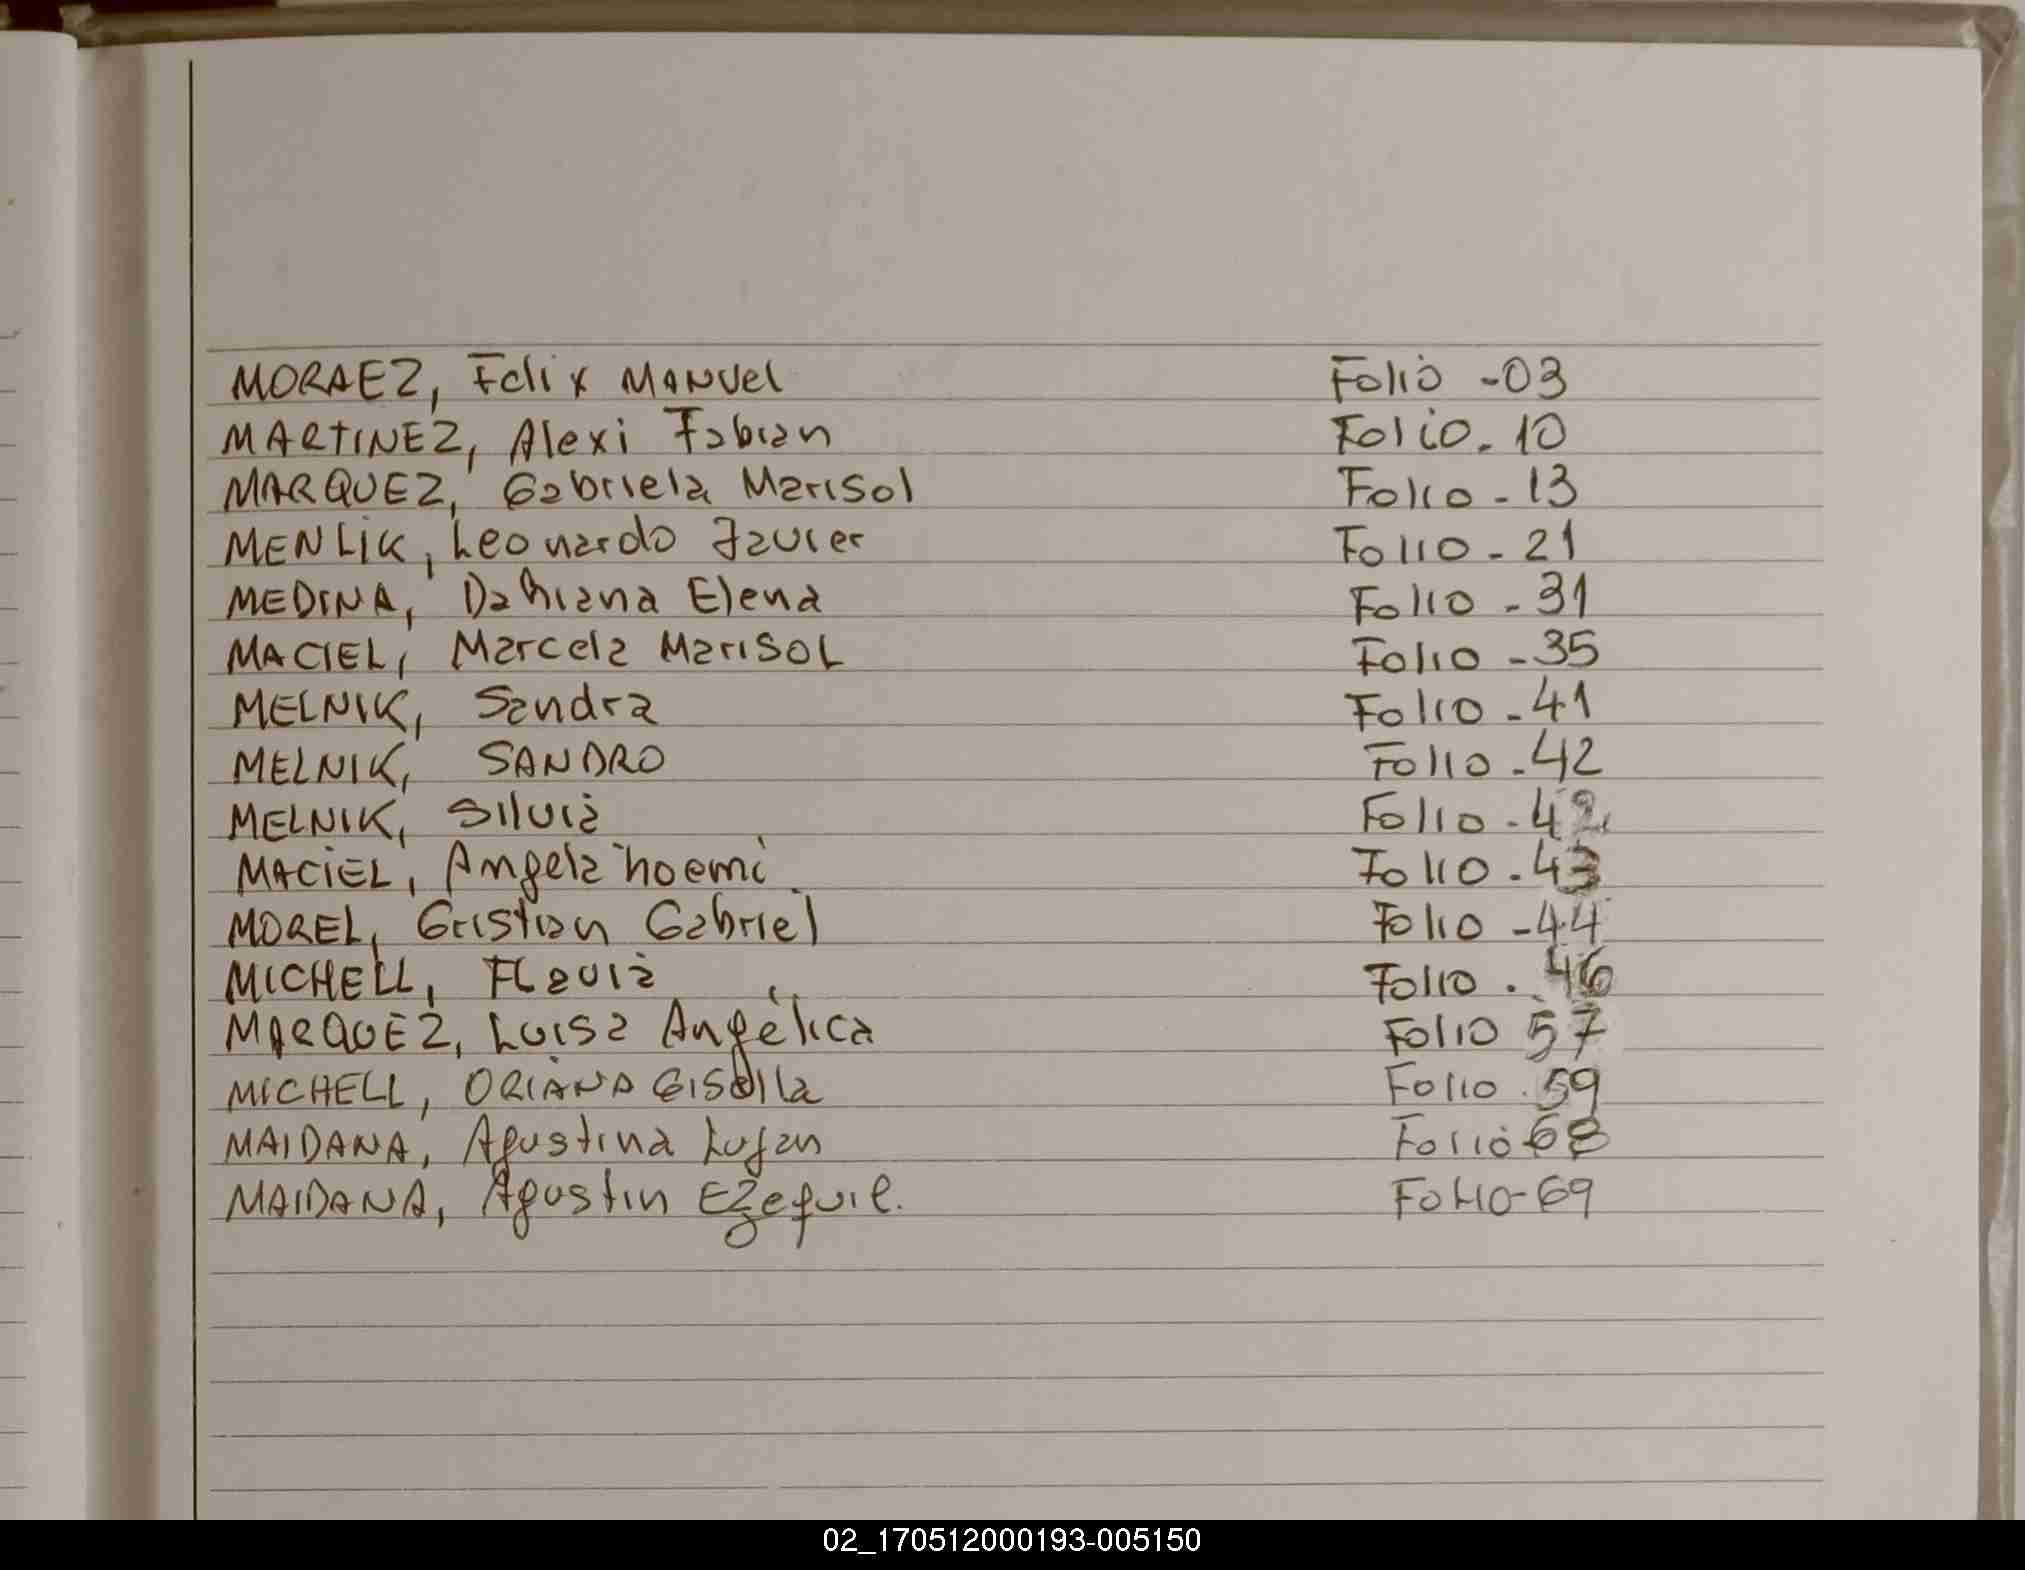 MORAEZ, Felix MANUEL Folio -03
MARTINEZ, Alexi Fabian Folio - 10
MARQUEZ, Gabriela Marisol Folio - 13
MENLIK, Leonardo Javier Folio - 21
MEDINA, Dahiana Elena Folio - 31
MACIEL, Marcela MarisoL Folio - 35
MELNIK, Sandra Folio - 41
MELNIK, SANDRO Folio - 42
MELNIK, Silvia Folio - 42
MACIEL, Angela noemi Folio - 43
MOREL, Cristian Gabriel Folio - 44
MICHELL, Flavia Folio . 46
MARQUEZ, Luisa Angélica Folio 57
MICHELL, ORIANA Gisella Folio . 59
MAIDANA, Agustina Lujan Folio 68
MAIDANA, Agustin Ezequil. Folio - 69
02_170512000193-005150